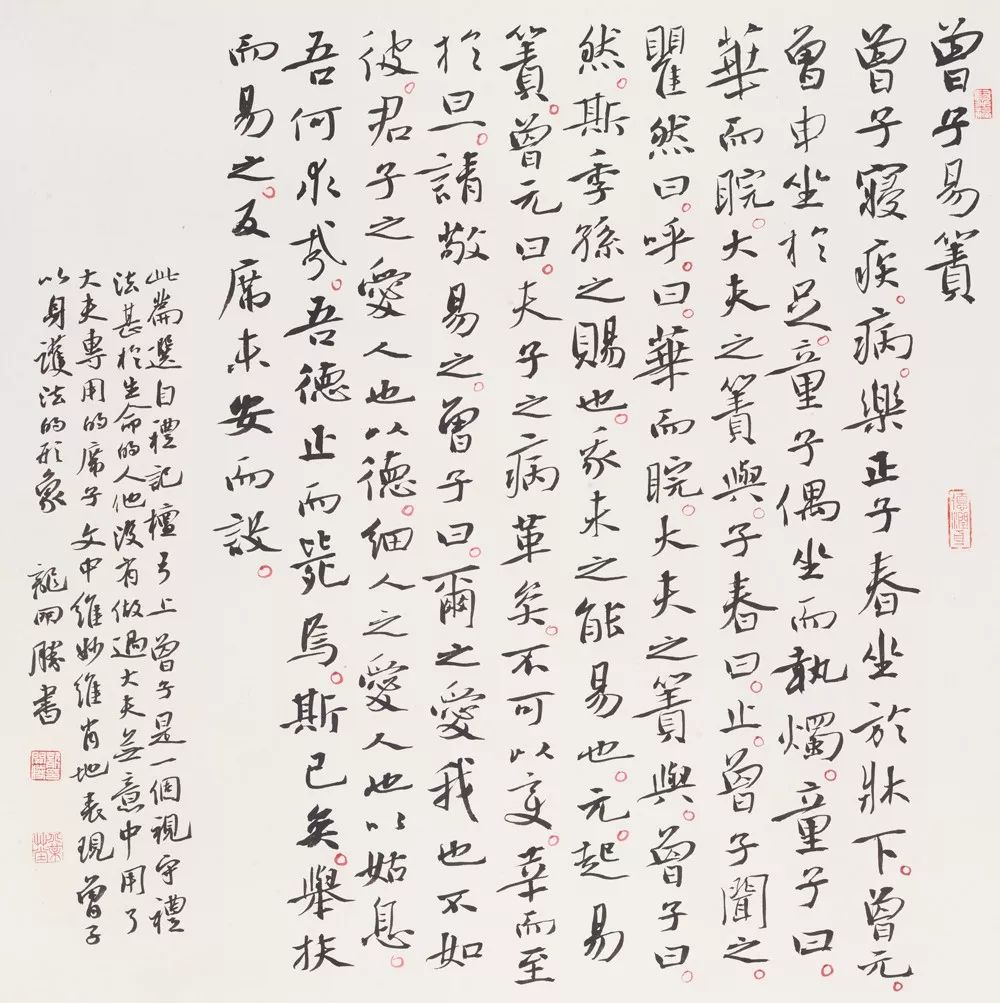 曾子易簀
曾子寢疾。病。樂正子春坐於牀下。曾元。
曾申坐於足。童子偶坐而執燭。童子曰。
華而睆。大夫之簀與。子春曰。止。曾子聞之。
瞿然曰。呼。曰。華而睆。大夫之簀與。曾子曰。
然。斯季孫之賜也。我未之能易也。元。起易
簀。曾元曰。夫子之病革矣。不可以变。幸而至
於旦。請敬易之。曾子曰。爾之愛我也不如
彼。君子之愛人也以德。細人之愛人也以姑息。
吾何求哉。吾德正而斃焉。斯已矣。舉扶
而易之。反席未安而設。
此篇選自禮記檀弓上曾子是一個視守禮
法甚於生命的人他沒有做過大夫無意中用了
大夫專用的席子文中維妙維肖地表現曾子
以身護法的形象 龍開勝書